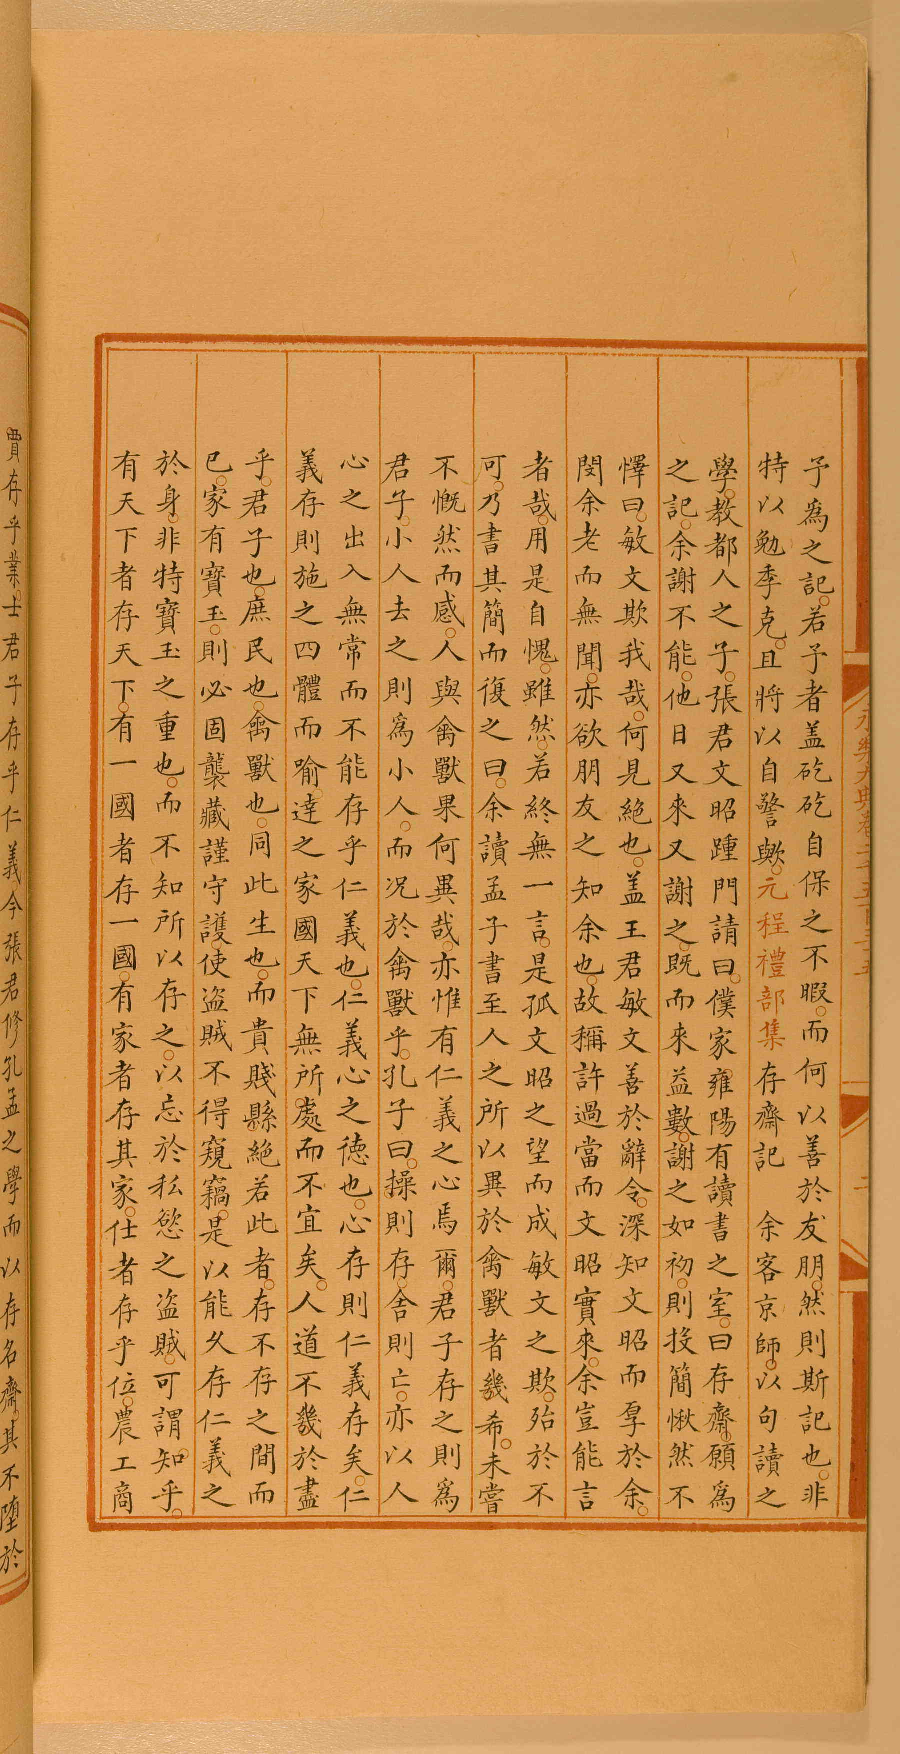 予爲之記若子者盖矻矻自保之不暇而何以善於友朋然則斯記也非
特以勉季克且將以自警歟元程禮部集存齋記　余客京師以句讀之
學教都人之子張君文昭踵門請曰僕家雍陽有讀書之室曰存齋願爲
之記余謝不能他日又來又謝之既而來益數謝之如初則投簡愀然不
懌曰敏文欺我哉何見絶也盖王君敏文善於辭令深知文昭而厚於余
閔余老而無聞亦欲朋友之知余也故稱許過當而文昭實來余豈能言
者哉用是自愧雖然若終無一言是孤文昭之望而成敏文之欺殆於不
可乃書其簡而復之曰余讀孟子書至人之所以異於禽獸者幾希未嘗
不慨然而感人與禽獸果何異哉亦惟有仁義之心焉爾君子存之則爲
君子小人去之則爲小人而况於禽獸乎孔子曰操則存舍則亡亦以人
心之出入無常而不能存乎仁義也仁義心之德也心存則仁義存矣仁
義存則施之四體而喻達之家國天下無所處而不宜矣人道不幾於盡
乎君子也庶民也禽獸也同此生也而貴賤縣絶若此者存不存之間而
已家有寶玉則必固襲藏謹守護使盗賊不得窺竊是以能久存仁義之
於身非特寶玉之重也而不知所以存之以忘於私慾之盗賊可謂知乎
有天下者存天下有一國者存一國有家者存其家仕者存乎位農工商
賈存乎業士君子存乎仁義今張君修孔孟之學而以存名齋其不墮於